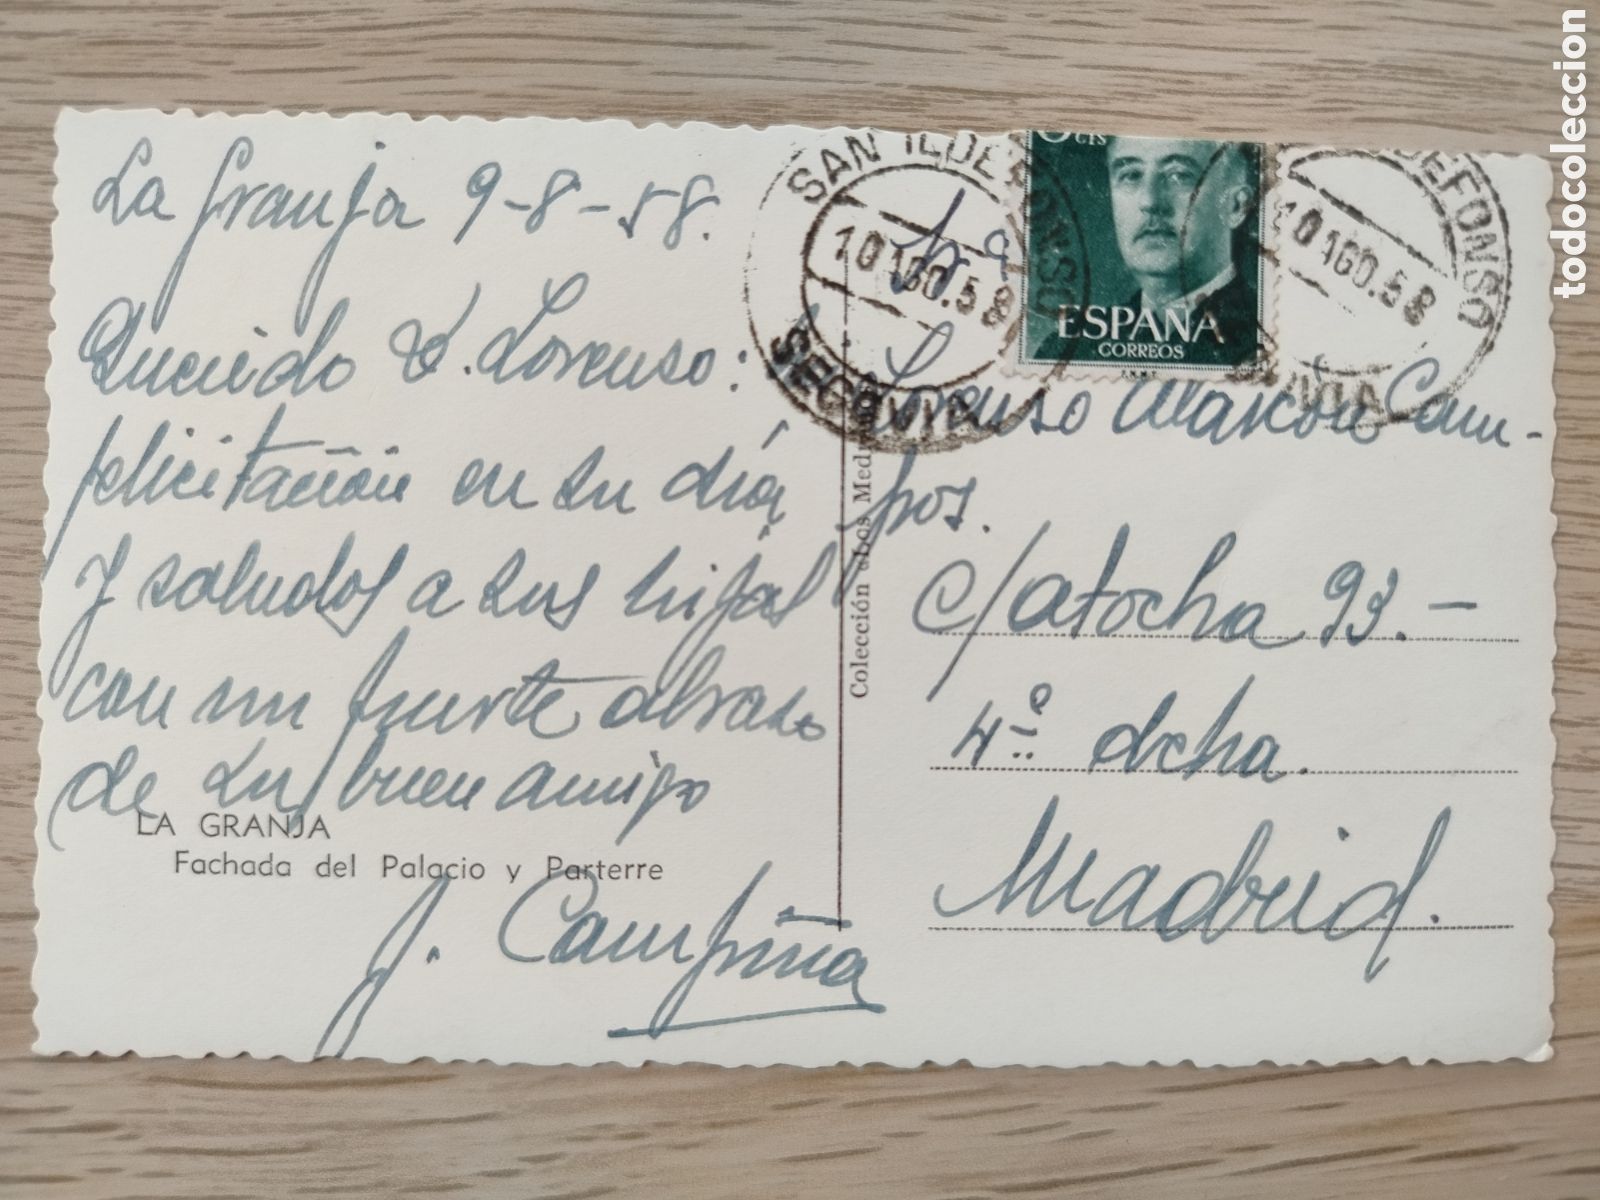 La Granja 9-8-58.
Querido D. Lorenso:
felicitación en su día
y saludos a sus hijas
con un fuerte abraso
de su buen amigo
LA GRANJA
Fachada del Palacio y Parterre
J. Campiña
Colección Los Med
SAN ILDEFONSO
10 AGO.58
SEGOVIA
CTS
ESPAÑA
CORREOS
F.N.M.T
ILDEFONSO
10 AGO.58
Lorenso Alarcón Cam-
pos.
c/ atocha 93.-
4º dcha.
Madrid.
todocoleccion